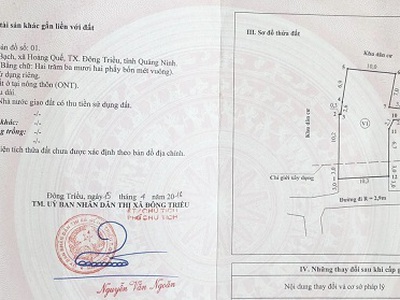 tài sản khác gắn liền với đất
bản đồ số: 01.
Bạch, xã Hoàng Quế, TX. Đông Triều, tỉnh Quảng Ninh.
Bằng chữ: Hai trăm ba mươi hai phẩy bốn mét vuông).
dụng riêng.
ất ở tại nông thôn (ONT).
u dài.
Nhà nước giao đất có thu tiền sử dụng đất.
-/-
khác: -/-
trồng: -/-
-/-
iện tích thửa đất chưa được xác định theo bản đồ địa chính.
Đông Triều, ngày
TM. UỶ BAN NHÂN DÂN THỊ XÃ ĐÔNG TRIỀU
KT/CHỦ TỊCH
PHÓ CHỦ TỊCH
Nguyễn Văn Ngoãn
III. Sơ đồ thửa đất
Khu dân cư
10,0
Khu dân cư
VI
10,2
Chỉ giới xây dựng
10,3
Đường đi R = 2,9m
IV. Những thay đổi sau khi cấp g
Nội dung thay đổi và cơ sở pháp lý